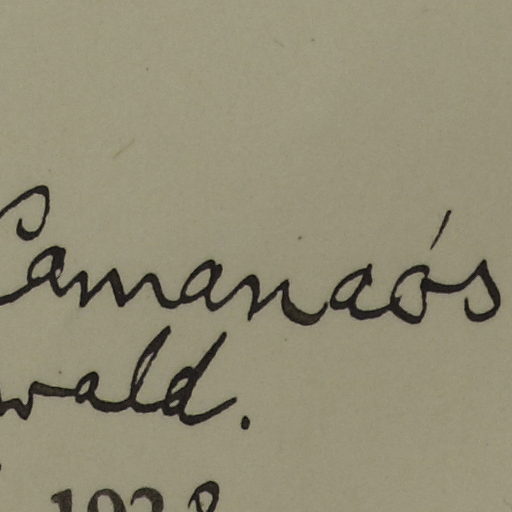 Camanaós
wald.
1928